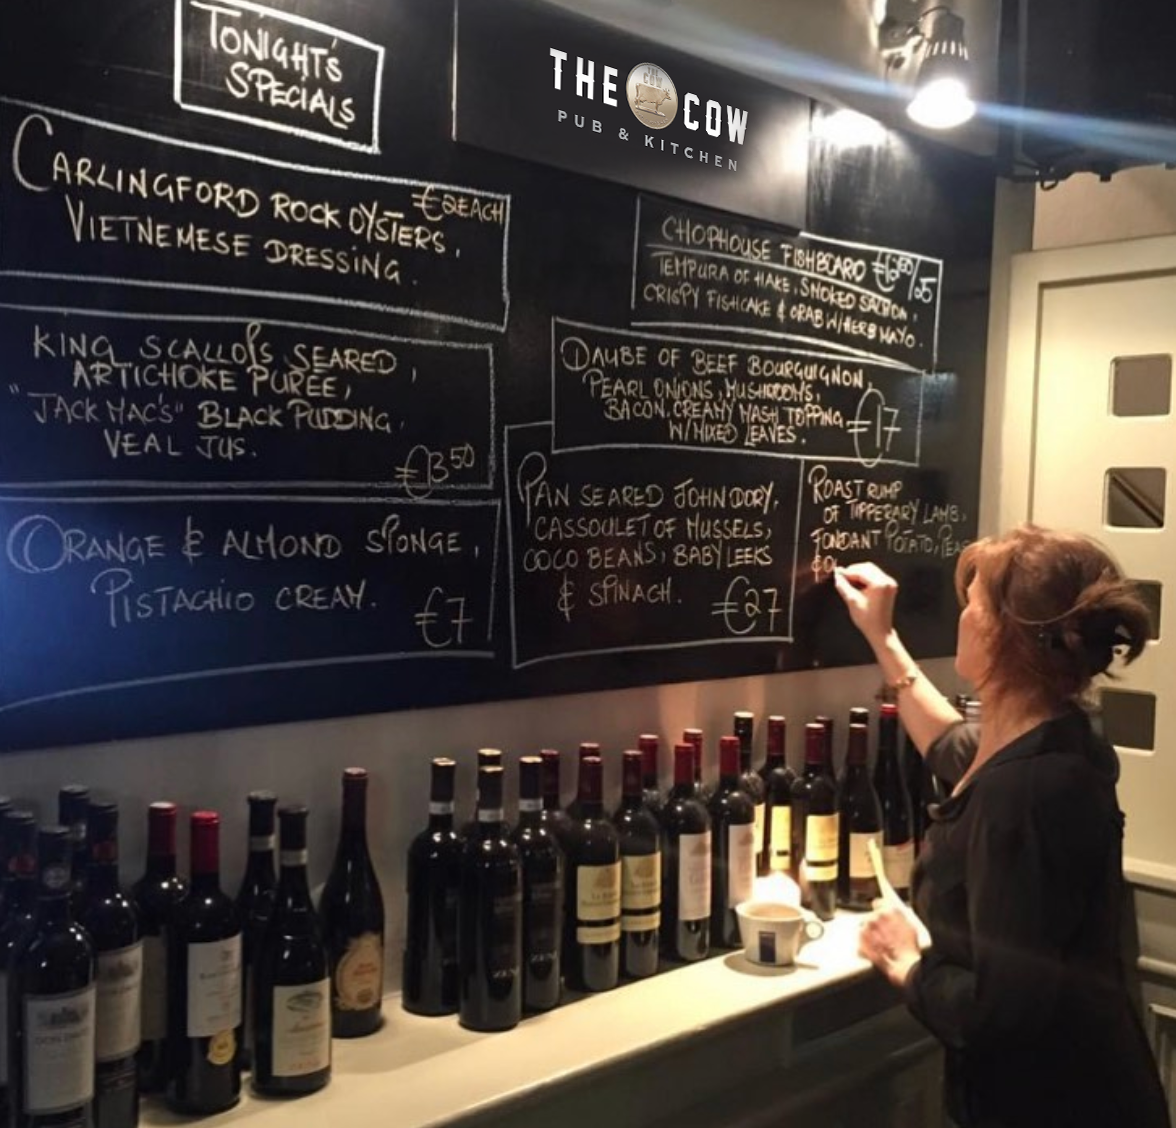 TONIGHT'S
SPECIALS
THE COW
PUB & KITCHEN
CARLINGFORD ROCK OYSTERS, €2 EACH
VIETNEMESE DRESSING.
KING SCALLOPS SEARED,
ARTICHOKE PURÉE,
"JACK MAC'S" BLACK PUDDING,
VEAL JUS.
€13.50
ORANGE & ALMOND SPONGE,
PISTACHIO CREAM.
€7
CHOPHOUSE FISHBOARD
TEMPURA OF HAKE, SMOKED SALMON,
CRISPY FISHCAKE & CRAB W/HERB MAYO.
DAUBE OF BEEF BOURGUIGNON,
PEARL ONIONS, MUSHROOMS,
BACON. CREAMY MASH TOPPING
W/MIXED LEAVES. €17
PAN SEARED JOHN DORY,
CASSOULET OF MUSSELS,
COCO BEANS, BABY LEEKS
& SPINACH. €27
ROAST RUMP
OF TIPPERARY LAMB,
FONDANT POTATO,
&